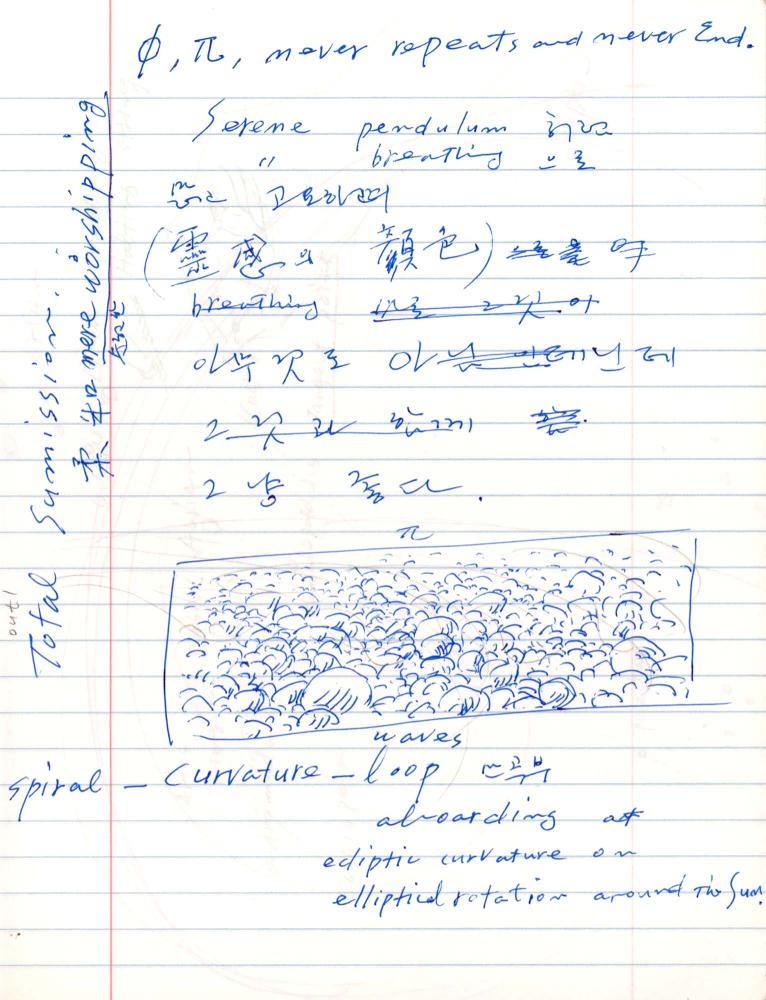 φ, π, never repeats and never End.
Serene pendulum
〃 breathing 으로
고요하며
(靈感의 顔色)
breathing
아무것도 아닌데
그것과 함께
그냥 좋다.
π
waves
spiral - curvature - loop
aboarding at
ecliptic curvature on
elliptical rotation around The Sun.
Total Summission
more worshipping
out1